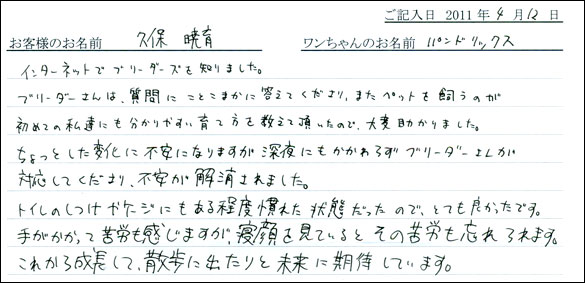 ご記入日 2011年4月12日
お客様のお名前 久保 暁育 ワンちゃんのお名前 パンドリックス
インターネットでブリーダーズを知りました。
ブリーダーさんは、質問にことこまかに答えてくださり、またペットを飼うのが
初めての私達にも分かりやすい育て方を教えて頂いたので、大変助かりました。
ちょっとした変化に不安になりますが深夜にもかかわらずブリーダーさんが
対応してくださり、不安が解消されました。
トイレのしつけやケージにもある程度慣れた状態だったので、とても良かったです。
手がかかって苦労も感じますが、寝顔を見ているとその苦労も忘れられます。
これから成長して、散歩に出たりと未来に期待しています。